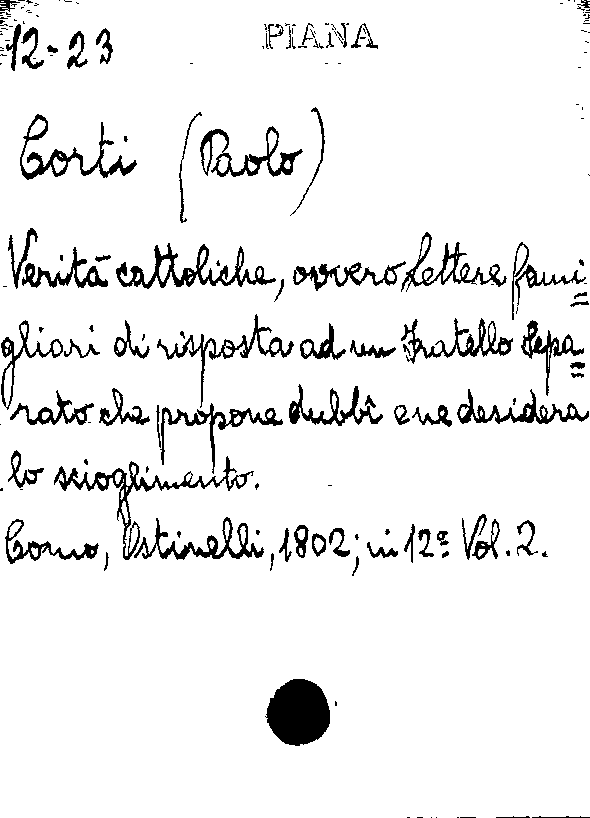 12-23
PIANA
Corti (Paolo)
Verità cattoliche, ovvero Lettere fami=
gliari di risposta ad un Fratello Sepa=
rato che propone dubbî e ne desidera
lo scioglimento.
Como, Ostinelli, 1802; in 12º Vol. 2.